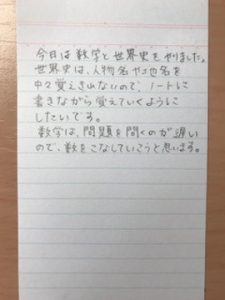 今日は数学と世界史をやりました。
世界史は、人物名や地名を
中々覚えきれないので、ノートに
書きながら覚えていくように
したいです。
数学は、問題を解くのが遅い
ので、数をこなしていこうと思います。